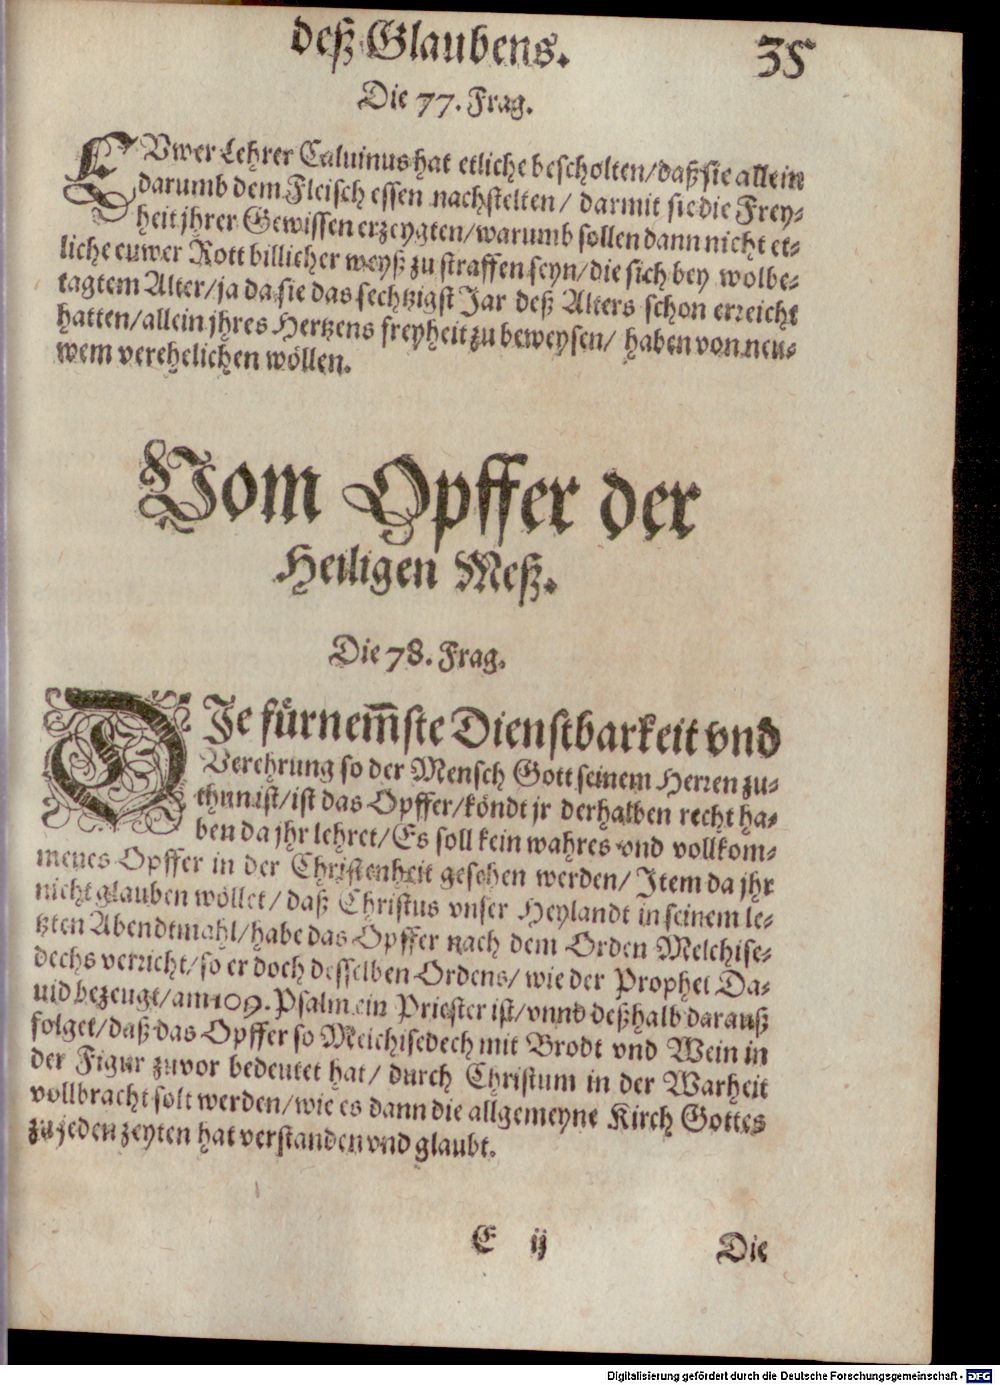 deß Glaubens. 35
Die 77. Frag.
EVwer Lehrer Caluinus hat etliche bescholten/ daß sie allein
darumb dem Fleisch essen nachstelten/ darmit sie die Frey-
heit jhrer Gewissen erzeygten/ warumb sollen dann nicht et-
liche euwer Rott billicher weyß zu straffen seyn/ die sich bey wolbe-
tagtem Alter/ ja da sie das sechtzigst Jar deß Alters schon erreicht
hatten/ allein jhres Hertzens freyheit zu beweysen/ haben von neu-
wem verehelichen wöllen.
Vom Opffer der
Heiligen Meß.
Die 78. Frag.
DIe fürnem̃ste Dienstbarkeit vnd
Verehrung so der Mensch Gott seinem Herren zu-
thun ist/ ist das Opffer/ köndt jr derhalben recht ha-
ben da jhr lehret/ Es soll kein wahres vnd vollkom-
menes Opffer in der Christenheit gesehen werden/ Item da jhr
nicht glauben wöllet/ daß Christus vnser Heylandt in seinem le-
tzten Abendtmahl/ habe das Opffer nach dem Orden Melchise-
dechs verricht/ so er doch desselben Ordens/ wie der Prophet Da-
uid bezeugt/ am 109. Psalm ein Priester ist/ vnnd deßhalb darauß
folget/ daß das Opffer so Melchisedech mit Brodt vnd Wein in
der Figur zuvor bedeutet hat/ durch Christum in der Warheit
vollbracht solt werden/ wie es dann die allgemeyne Kirch Gottes
zu jeden zeyten hat verstanden vnd glaubt.
E ij Die
Digitalisierung gefördert durch die Deutsche Forschungsgemeinschaft - DFG